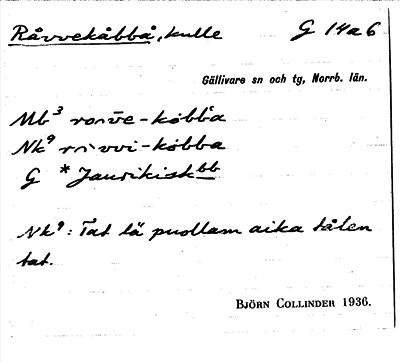 Råvvekåbbå, kulle G 14a6
Gällivare sn och tg, Norrb. län.
Mb³ -kåbba
Nk⁹ -kåbba
G *Jaurikisk
Nk⁹: Tat lä puollam aika tålen
tat.
BJÖRN COLLINDER 1936.